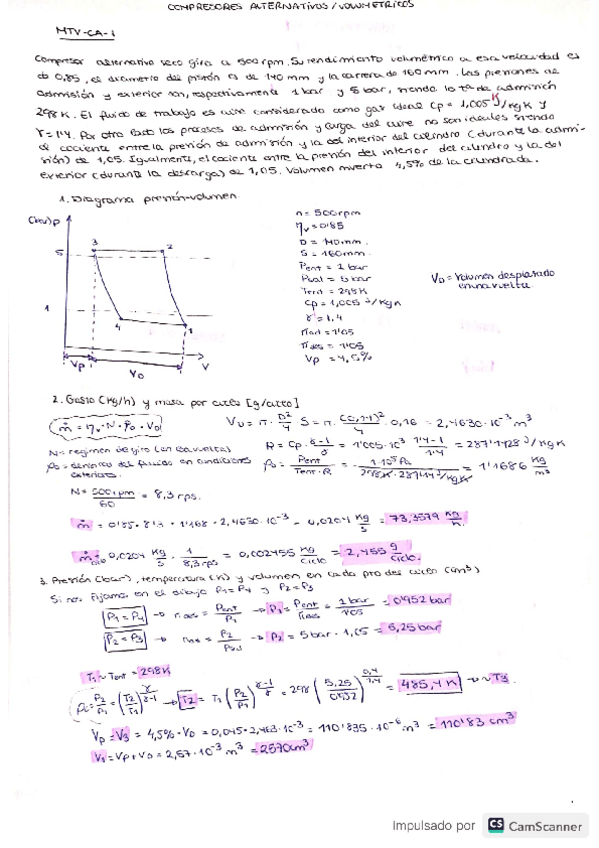 COMPRESORES ALTERNATIVOS / VOLUMÉTRICOS
MTV-CA-1
Compresor alternativo seco gira a 500 rpm. Su rendimiento volumétrico a esa velocidad es
de 0,85, el diámetro del pistón es de 140 mm y la carrera de 160 mm. Las presiones de
admisión y exterior son, respectivamente 1 bar y 5 bar, siendo la tª de admisión
298 K. El fluido de trabajo es aire considerado como gas ideal Cp = 1,005 J/kg K y
γ = 1,4. Por otro lado los procesos de admisión y carga del aire no son ideales siendo
el cociente entre la presión de admisión y la del interior del cilindro (durante la admi-
sión) de 1,05. Igualmente, el cociente entre la presión del interior del cilindro y la del
exterior (durante la descarga) de 1,05. Volumen muerto 4,5% de la cilindrada.
1. Diagrama presión-volumen
(bar) p
5
1
3
2
4
1
Vp
VD
V
n = 500 rpm
ηv = 0'85
D = 140 mm.
S = 160 mm.
Pent = 1 bar
Psal = 5 bar
Tent = 298 K
Cp = 1,005 J/kg K
γ = 1,4
= 1'05
πdes = 1'05
Vp = 4,5%
VD = Volumen desplazado
en una vuelta.
2. Gasto (kg/h) y masa por ciclo [g/ciclo]
ṁ = ηv · N · ρo · VD
VD = π · D²/4 · S = π · (0,14)²/4 · 0,16 = 2,4630 · 10⁻³ m³
N = régimen de giro (en vuelta)
R = Cp · γ-1/γ = 1'005 · 10³ 1'4-1/1'4 = 287'1428 J/kg K
ρo = densidad del fluido en condiciones
exteriores.
ρo = Pent/Tent · R = 1·10⁵ Pa/298K · 287'14 J/kg K = 1'1686 kg/m³
N = 500 rpm/60 = 8,3 rps.
ṁ = 0'85 · 8'3 · 1'168 · 2,4630 · 10⁻³ = 0,0204 kg/s = 73,3579 kg/h.
ṁciclo = 0,0204 kg/s · 1/8,3 rps = 0,002455 kg/ciclo = 2,455 g/ciclo.
3. Presión (bar), temperatura (K) y volumen en cada pto des ciclo (cm³)
Si nos fijamos en el dibujo P1 = P4 y P2 = P3
P1 = P4 → = Pent/P1 → P1 = Pent/ = 1 bar/1'05 = 0'952 bar
P2 = P3 → = P2/Psal → P2 = 5 bar · 1,05 = 5,25 bar
T1 ~ Tent = 298 K
= P2/P1 = (T2/T1)^γ/γ-1 → T2 = T1 (P2/P1)^γ-1/γ = 298 (5,25/0,952)^0,4/1,4 = 485,4 K → T3
Vp = V3 = 4,5% · VD = 0,045 · 2,463 · 10⁻³ = 110'835 · 10⁻⁶ m³ = 110'83 cm³
V1 = Vp + VD = 2,57 · 10⁻³ m³ = 2570 cm³
Impulsado por CS CamScanner